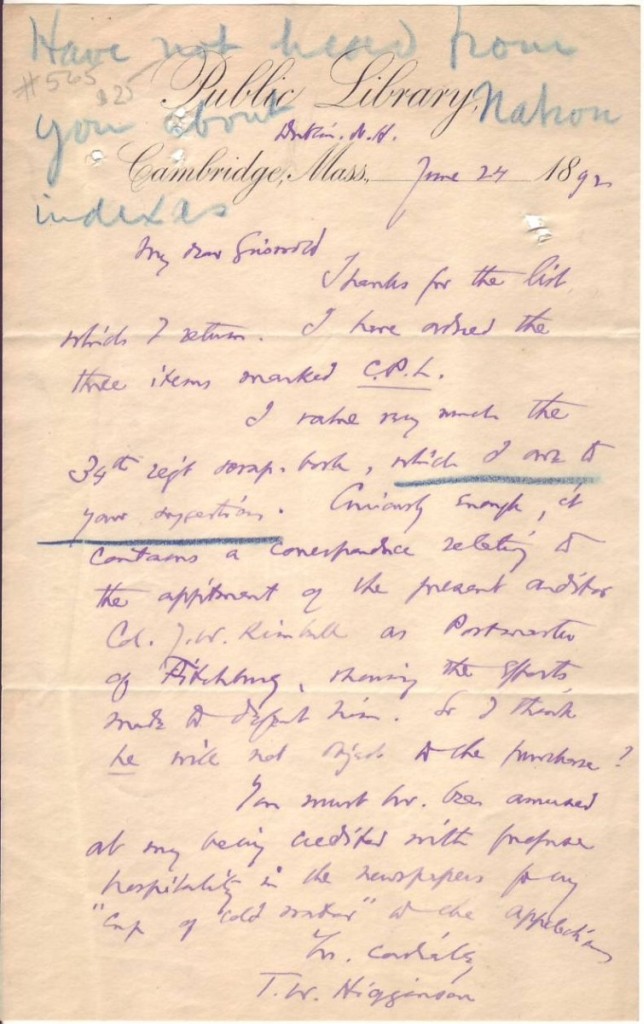 Have not heard from
#565
$25
Public Library,
Nation
you about
Dublin. N.H.
Cambridge, Mass., June 24 1892
indexes
My dear Griswold
Thanks for the list,
which I return. I have ordered the
three items marked C.P.L.
I value very much the
34th regt scrap-book, which I owe to
your suggestion. Curiously enough, it
contains a correspondence relating to
the appitment of the present auditor
Col. J.W. Kimball as Postmaster
of Fitchburg, showing the efforts
made to defeat him. So I think
he will not object to the purchase?
You must hv. been amused
at my being credited with profuse
hospitality in the newspapers for my
"Cup of cold water" to the
Yr. cordially
T.W. Higginson